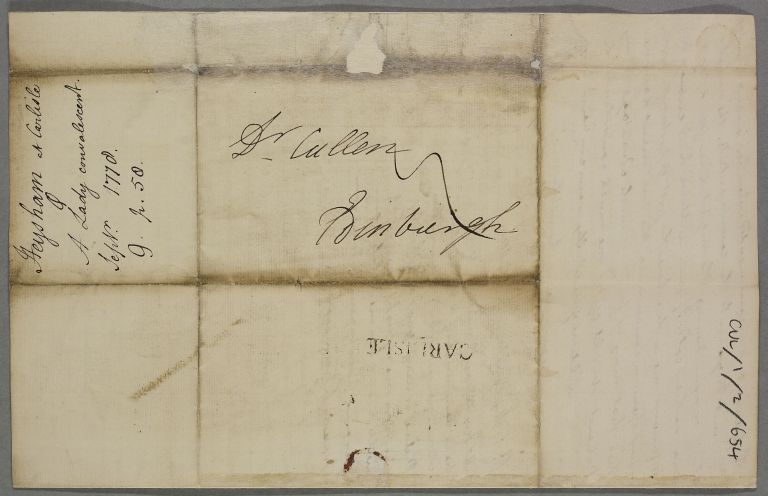 Heysham at Carlisle
&
A Lady convalescent.
Septr. 1778.
9. p. 50.
Dr Cullen
Edinburgh
CARLISLE
CUL/1/2/654